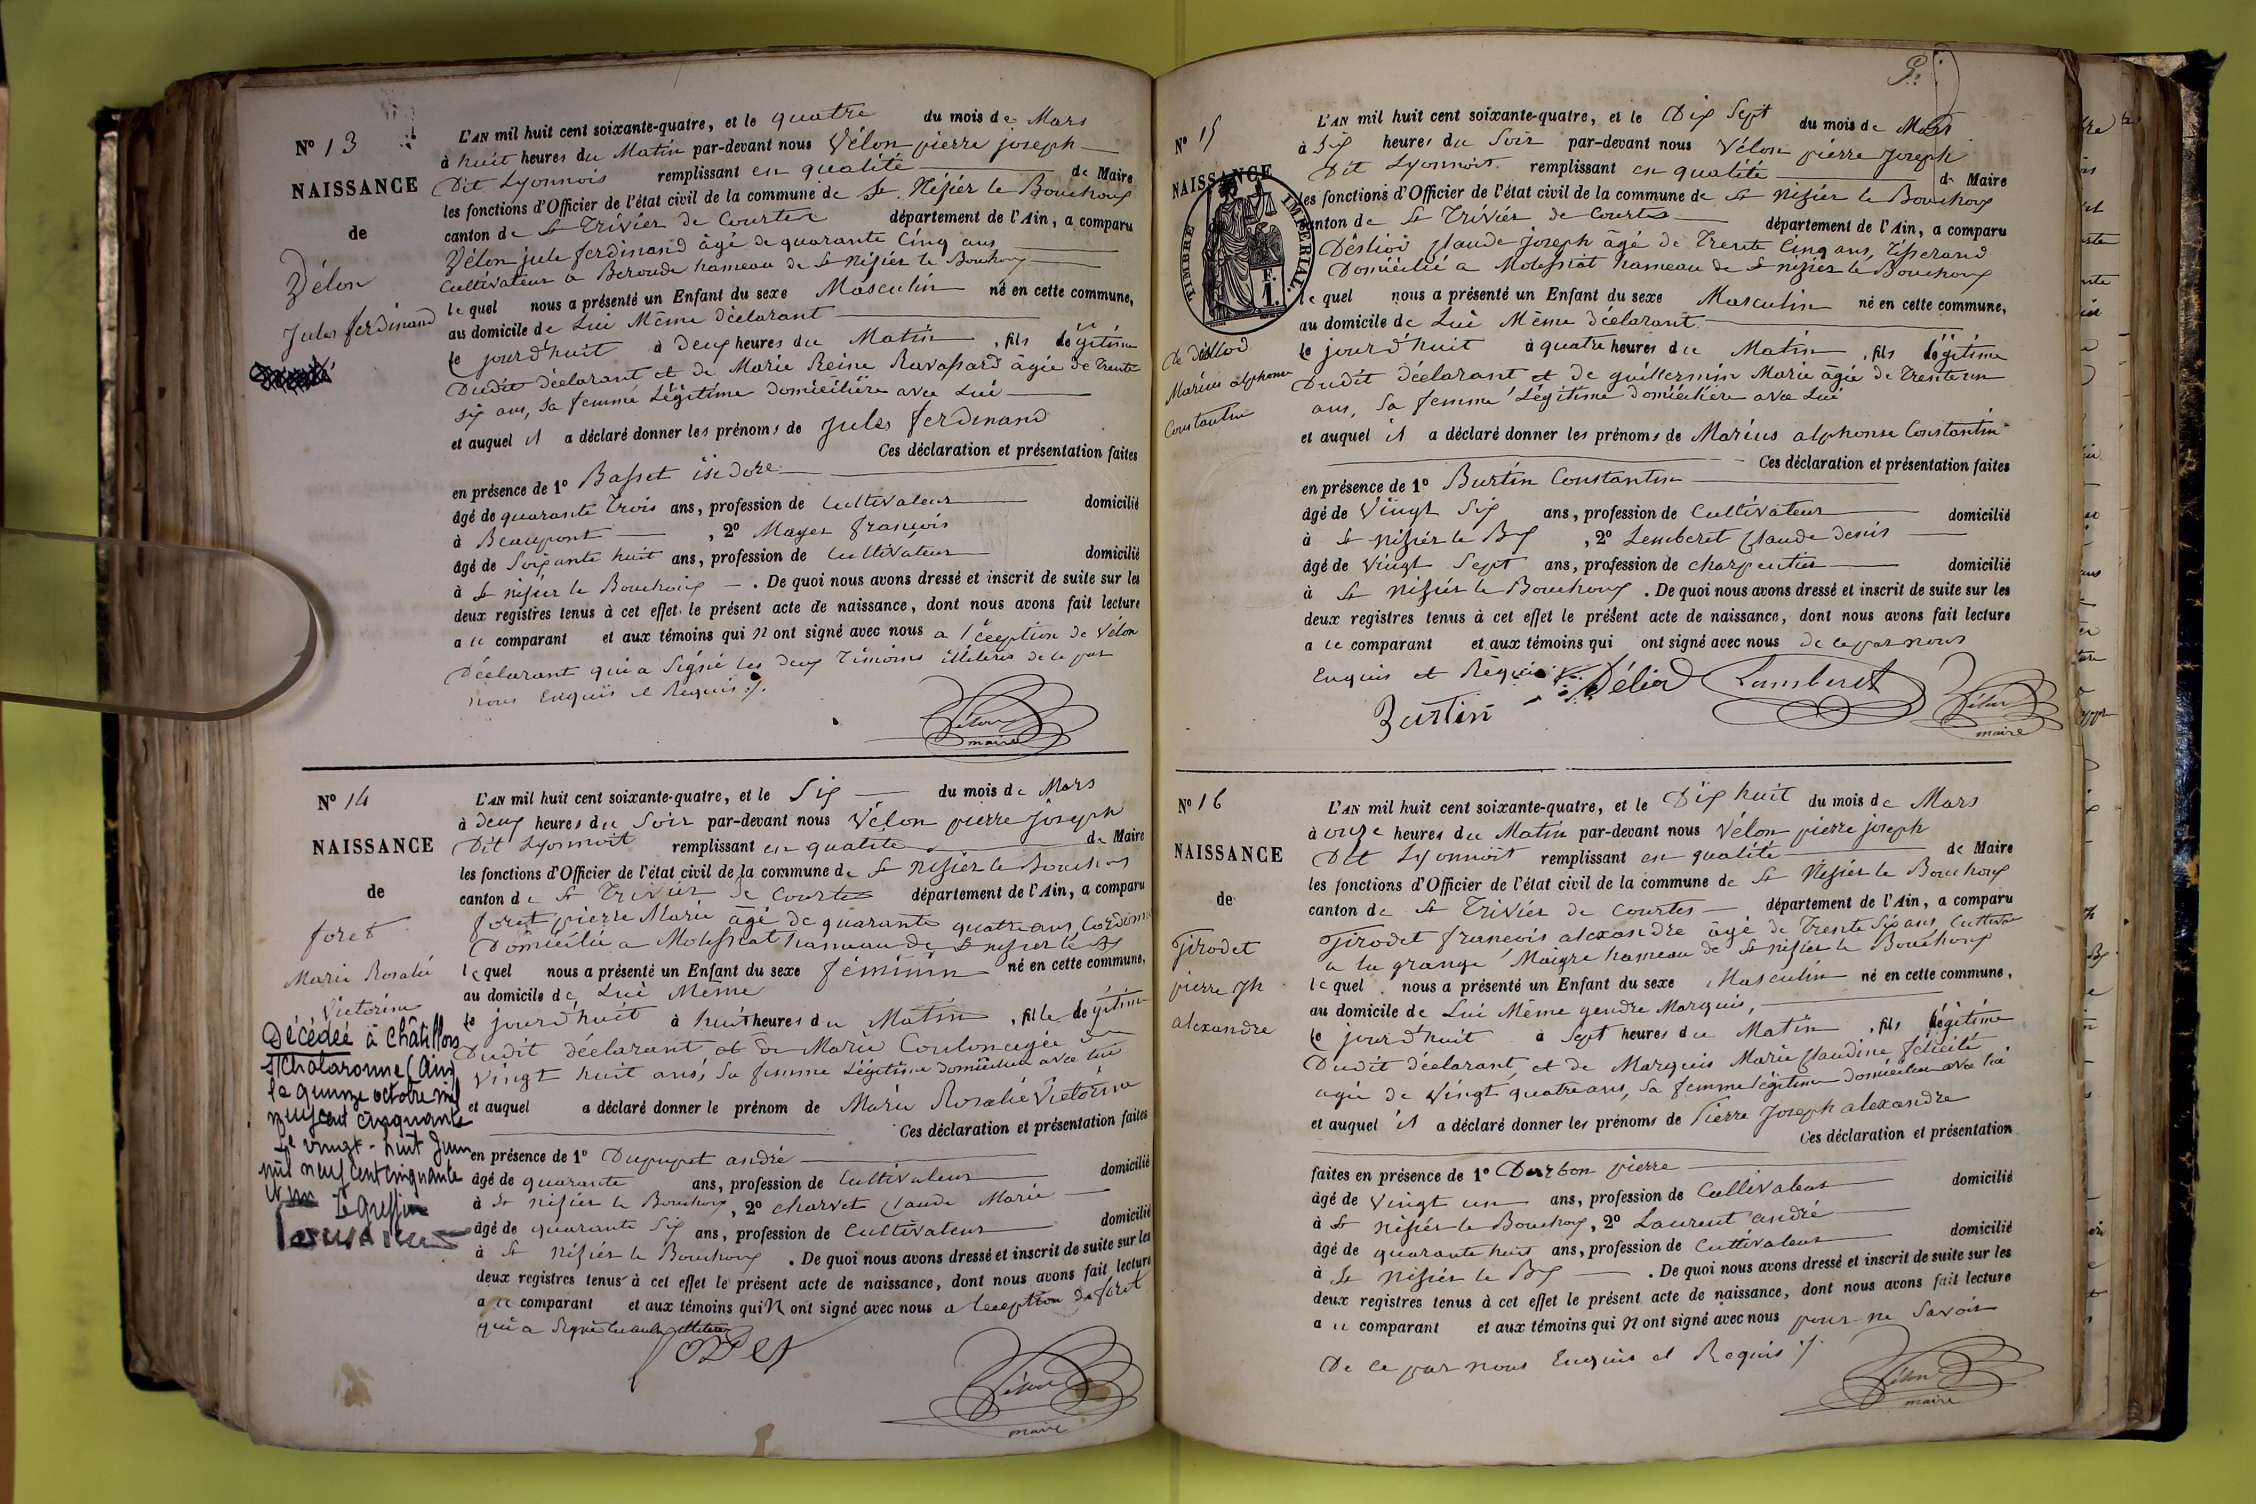 N° 13
NAISSANCE
de
Vélon
Jules ferdinand
L'AN mil huit cent soixante-quatre, et le quatre du mois de Mars
à huit heures du Matin par-devant nous Vélon pierre joseph
Dit Lyonnois remplissant en qualité de Maire
les fonctions d'Officier de l'état civil de la commune de St Nisiér le Bouchoux
canton de St Triviér de Courtes département de l'Ain, a comparu
Vélon jule ferdinand âgé de quarante Cinq ans
Cultivateur a Beroude hameau de St Nisiér le Bouchoux
le quel nous a présenté un Enfant du sexe Masculin né en cette commune,
au domicile de Lui Même déclarant
le jourd'huit à deux heures du Matin, fils légitime
Dudit déclarant et de Marie Reine Ravassard âgée de trente
six ans, sa femme Légitime domiciliére avec Lui
et auquel il a déclaré donner les prénoms de Jules ferdinand
Ces déclaration et présentation faites
en présence de 1° Basset isidore
âgé de quarante trois ans, profession de Cultivateur domicilié
à Beaupont, 2° Mayer françois
âgé de Soixante huit ans, profession de Cultivateur domicilié
à St nisiér le Bouchoux. De quoi nous avons dressé et inscrit de suite sur les
deux registres tenus à cet effet le présent acte de naissance, dont nous avons fait lecture
a ce comparant et aux témoins qui n ont signé avec nous a l'éxeption de Vélon
Déclarant qui a Signé les deux Témoins illiterés de ce par
nous Enquis et Requis ./.
Vélon
maire
N° 14
NAISSANCE
de
foret
Marie Rosalié
Victorine
Décédée à Châtillon
s/Chalaronne (Ain)
le quinze octobre mil
neuf cent cinquante
Le vingt-huit Juin
mil neuf cent cinquante
et un Le Greffier
L'AN mil huit cent soixante-quatre, et le Six du mois de Mars
à deux heures du Soir par-devant nous Vélon pierre joseph
Dit Lyonnoit remplissant en qualité de Maire
les fonctions d'Officier de l'état civil de la commune de St Nisiér le Bouchoux
canton de St Triviér de Courtes département de l'Ain, a comparu
foret pierre Marie âgé de quarante quatre ans, Cordonn
Domicilié a Molessiat hameau de St nisier le Bx
le quel nous a présenté un Enfant du sexe féminin né en cette commune,
au domicile de Lui Même
le jourd'huit à huit heures du Matin, fille légitime
Dudit déclarant et de Marie Coulon agée de
Vingt huit ans, Sa femme Légitime domiciliée avec lui
et auquel a déclaré donner le prénom de Marie Rosalié Victorine
Ces déclaration et présentation faites
en présence de 1° Dupupet andré
âgé de quarante ans, profession de Cultivateur domicilié
à St nisiér le Bouchoux, 2° charvet Claude Marie
âgé de quarante Six ans, profession de Cultivateur domicilié
à St Nisiér le Bouchoux. De quoi nous avons dressé et inscrit de suite sur les
deux registres tenus à cet effet le présent acte de naissance, dont nous avons fait lecture
a ce comparant et aux témoins qui N ont signé avec nous a lexeption de foret
qui a Signé
foret
Vélon
maire
N° 15
NAISSANCE
TIMBRE IMPÉRIAL
F.
1.
de désliod
Marius alphonse
Constantin
L'AN mil huit cent soixante-quatre, et le Dix Sept du mois de Mars
à Six heures du Soir par-devant nous Vélon pierre Joseph
Dit Lyonnoit remplissant en qualité de Maire
les fonctions d'Officier de l'état civil de la commune de St nisiér le Bouchoux
canton de St Triviér de Courtes département de l'Ain, a comparu
Désliod Claude joseph âgé de Trente Cinq ans, Tisserand
Domicilié a Molessiat hameau de St nisier le Bouchoux
le quel nous a présenté un Enfant du sexe Masculin né en cette commune,
au domicile de Lui Même déclarant
le jourd'huit à quatre heures du Matin, fils légitime
Dudit déclarant et de guillermin Marie âgée de Trente un
ans, Sa femme Légitime domiciliére avec Lui
et auquel il a déclaré donner les prénoms de Marius alphonse Constantin
Ces déclaration et présentation faites
en présence de 1° Burtin Constantin
âgé de Vingt Six ans, profession de Cultivateur domicilié
à St nisiér le Bx, 2° Lemberet Claude denis
âgé de Vingt Sept ans, profession de charpentier domicilié
à St Nisiér le Bouchoux. De quoi nous avons dressé et inscrit de suite sur les
deux registres tenus à cet effet le présent acte de naissance, dont nous avons fait lecture
a ce comparant et aux témoins qui ont signé avec nous de ce par nous
Enquis et Requis
Déliod Lamberet
Burtin
Vélon
maire
N° 16
NAISSANCE
de
Girodet
pierre Jh
alexandre
L'AN mil huit cent soixante-quatre, et le Dix huit du mois de Mars
à onze heures du Matin par-devant nous Vélon pierre joseph
Dit Lyonnoit remplissant en qualité de Maire
les fonctions d'Officier de l'état civil de la commune de St Nisiér le Bouchoux
canton de St Triviér de Courtes département de l'Ain, a comparu
Girodet francois alexandre âgé de Trente Six ans Cultivat
a la grange Maigre hameau de St nisiér le Bouchoux
le quel nous a présenté un Enfant du sexe Masculin né en cette commune,
au domicile de Lui Même gendre Marquis,
le jourd'huit à Sept heures du Matin, fils légitime
Dudit déclarant, et de Marquis Marie Claudine félicité
agée de Vingt quatre ans, Sa femme légitime domiciliée avec lui
et auquel il a déclaré donner les prénoms de Pierre Joseph alexandre
Ces déclaration et présentation
faites en présence de 1° Durbon pierre
âgé de Vingt un ans, profession de Cultivateur domicilié
à St nisiér le Bouchoux, 2° Laurent andré
âgé de quarante huit ans, profession de Cultivateur domicilié
à St Nisiér le Bx. De quoi nous avons dressé et inscrit de suite sur les
deux registres tenus à cet effet le présent acte de naissance, dont nous avons fait lecture
a ce comparant et aux témoins qui N ont signé avec nous pour ne Savoir
De ce par nous Enquis et Requis ./.
Vélon
maire